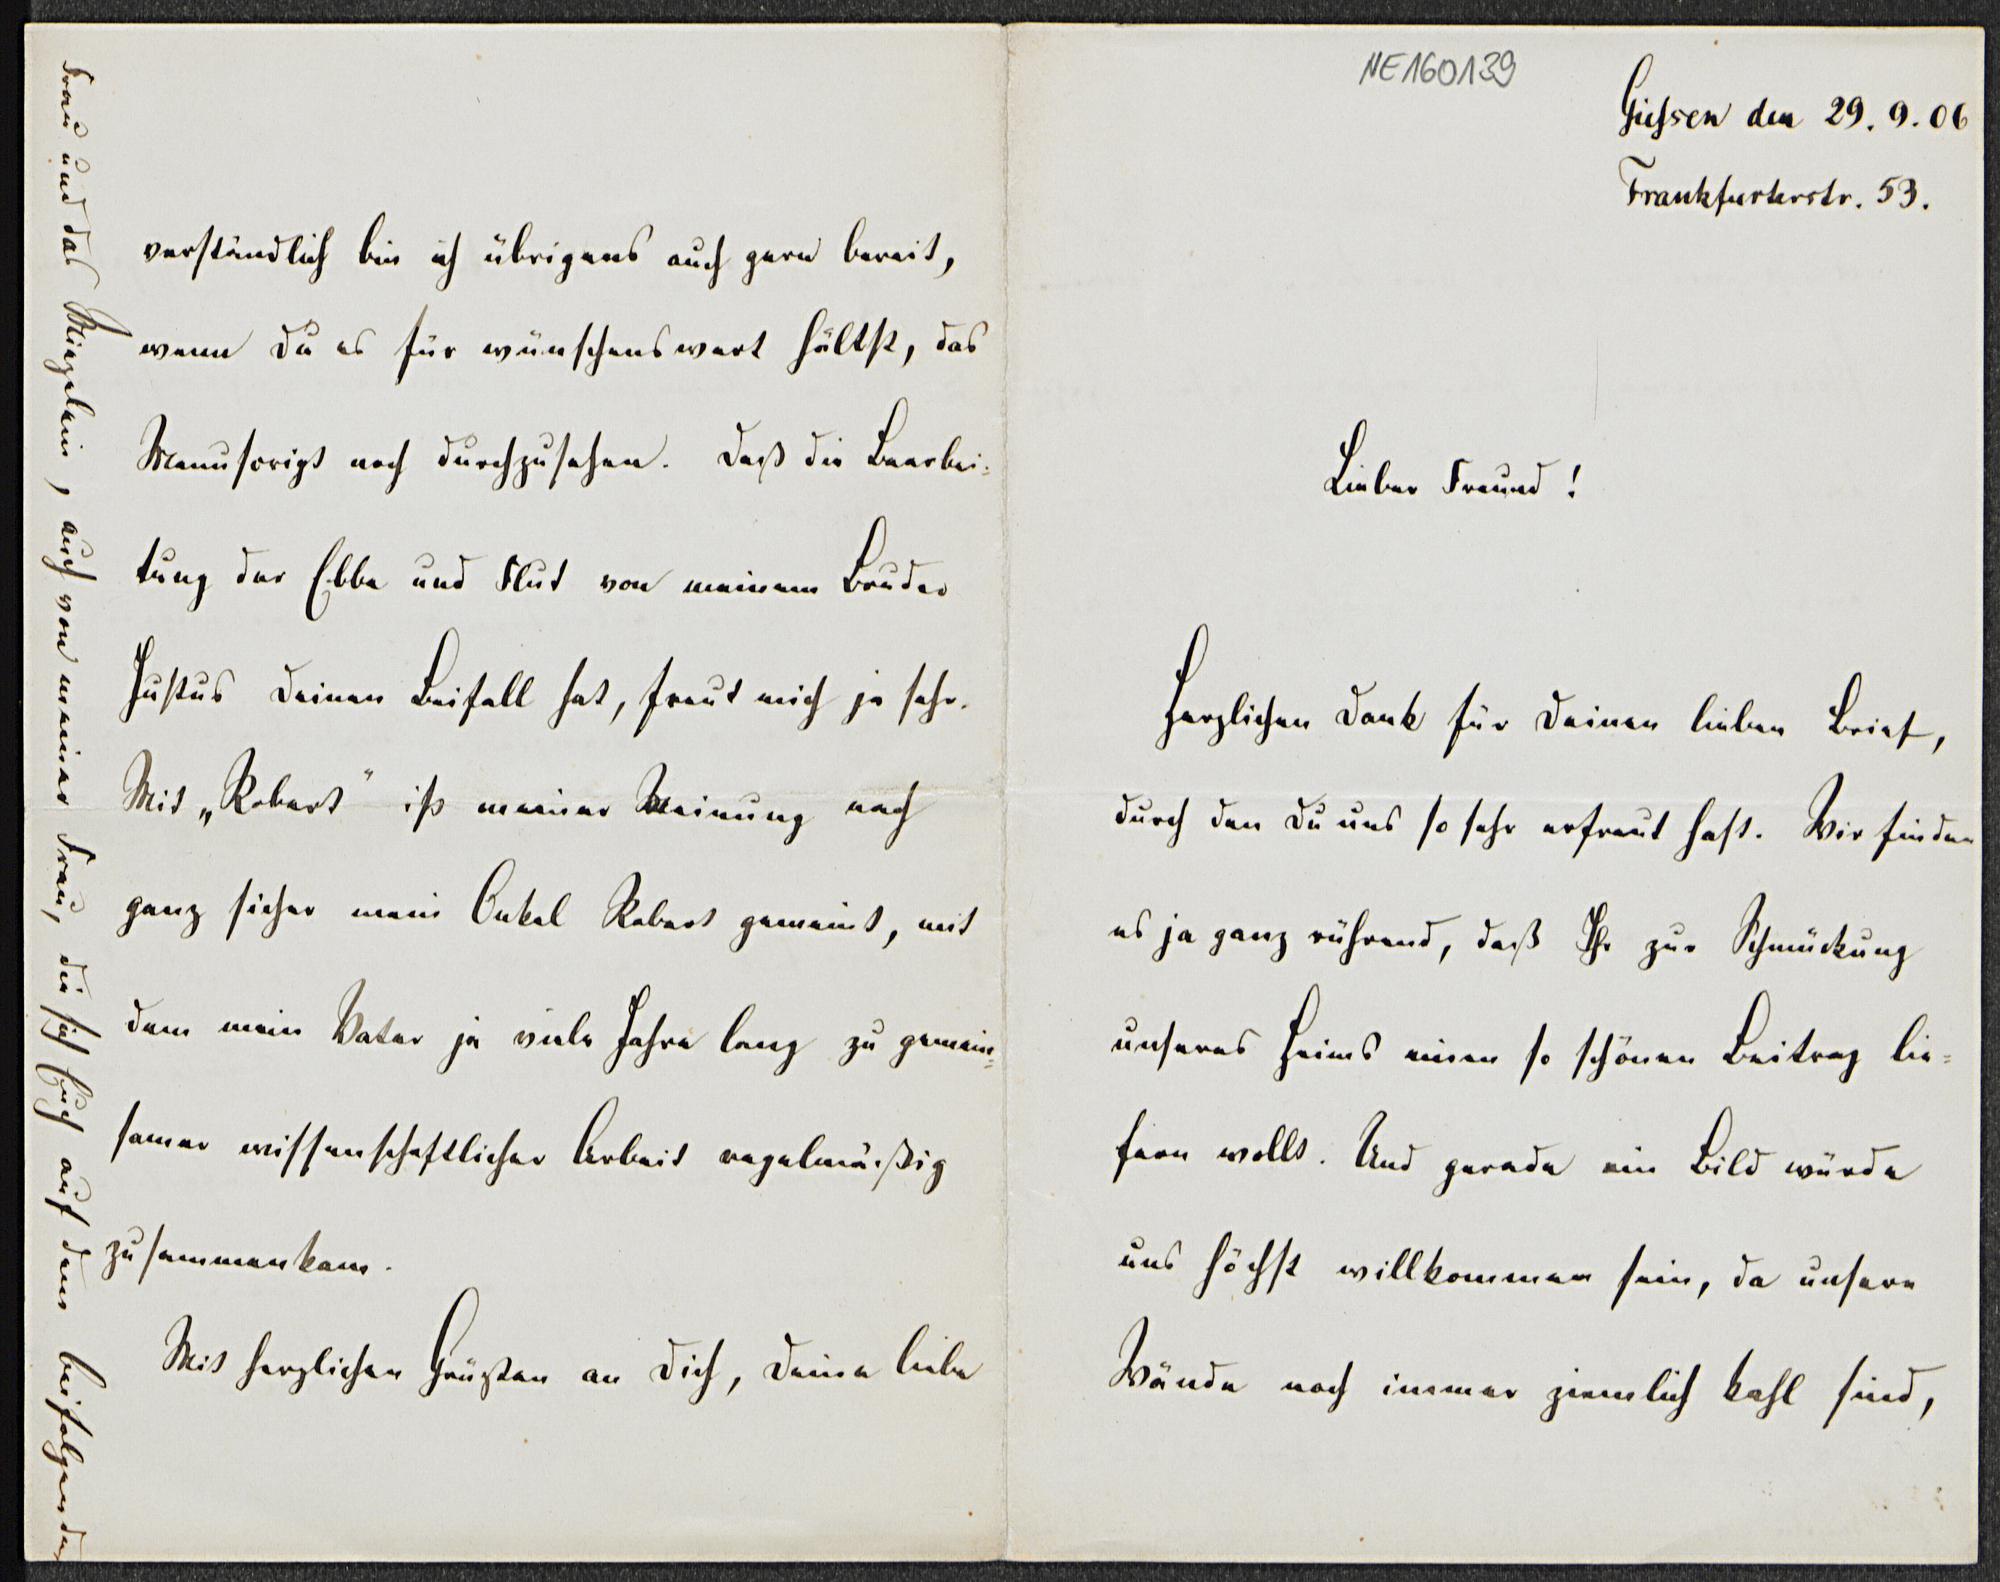 NE160139
Giessen den 29.9.06
Frankfurterstr. 53.
Lieber Freund!
Herzlichen Dank für Deinen lieben Brief,
durch den Du uns so sehr erfreut hast. Wir finden
es ja ganz rührend, daß Ihr zur Schmückung
unseres Heims einen so schönen Beitrag lie=
fern wollt. Und gerade ein Bild würde
uns höchst willkommen sein, da unsere
Wände noch immer ziemlich kahl sind,
verständlich bin ich übrigens auch gern bereit,
wenn Du es für wünschenswert hältst, das
Manuscript noch durchzusehen. Daß die Bearbei=
tung der Ebbe und Flut von meinem Bruder
Justus Deinen Beifall hat, freut mich ja sehr.
Mit „Robert" ist meiner Meinung nach
ganz sicher mein Onkel Robert gemeint, mit
dem mein Vater ja viele Jahre lang zu gemein=
samer wissenschaftlicher Arbeit regelmäßig
zusammenkam.
Mit herzlichen Grüßen an Dich, Deine liebe
Frau und das , auch von meiner Frau, die sich Euch auf dem beifolgenden